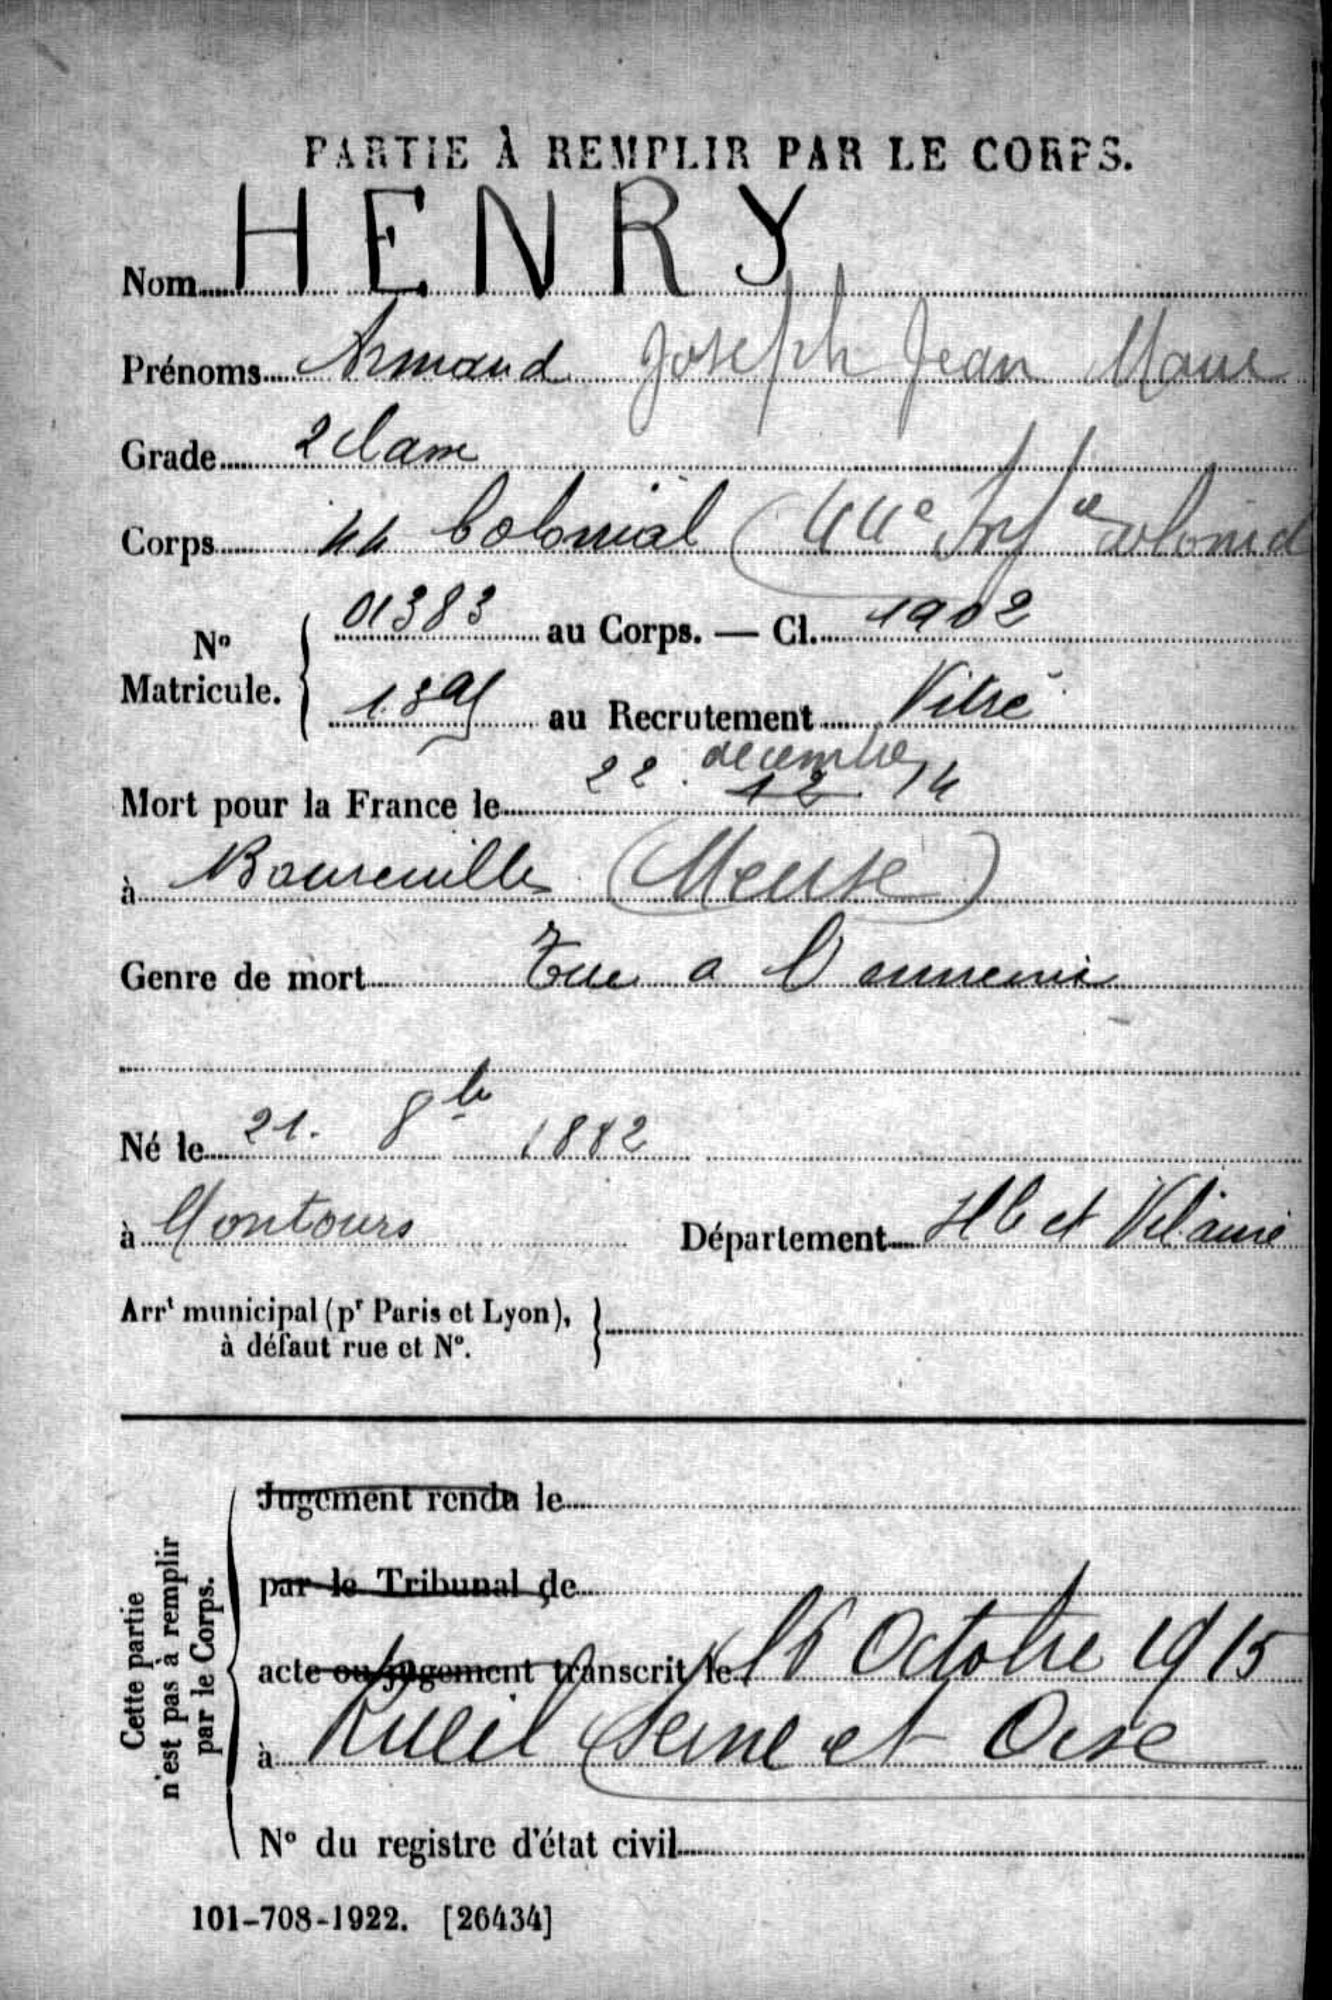 PARTIE À REMPLIR PAR LE CORPS.
Nom HENRY
Prénoms Armand Joseph Jean Marie
Grade 2 classe
Corps 44 Colonial (44e Infie Colonial
No Matricule. { 01383 au Corps. — Cl. 1902
au Recrutement Vitré
décembre
Mort pour la France le 22. 12 14
à Boureuilles (Meuse)
Genre de mort Tué a l'ennemi
Né le 21. 8bre 1882
à Montours Département Ille et Vilaine
Arrt municipal (pr Paris et Lyon),
à défaut rue et No.
Cette partie
n'est pas à remplir
par le Corps.
Jugement rendu le
par le Tribunal de
acte ou jugement transcrit le 16 Octobre 1915
à Rueil (Seine et Oise
No du registre d'état civil
101-708-1922. [26434]